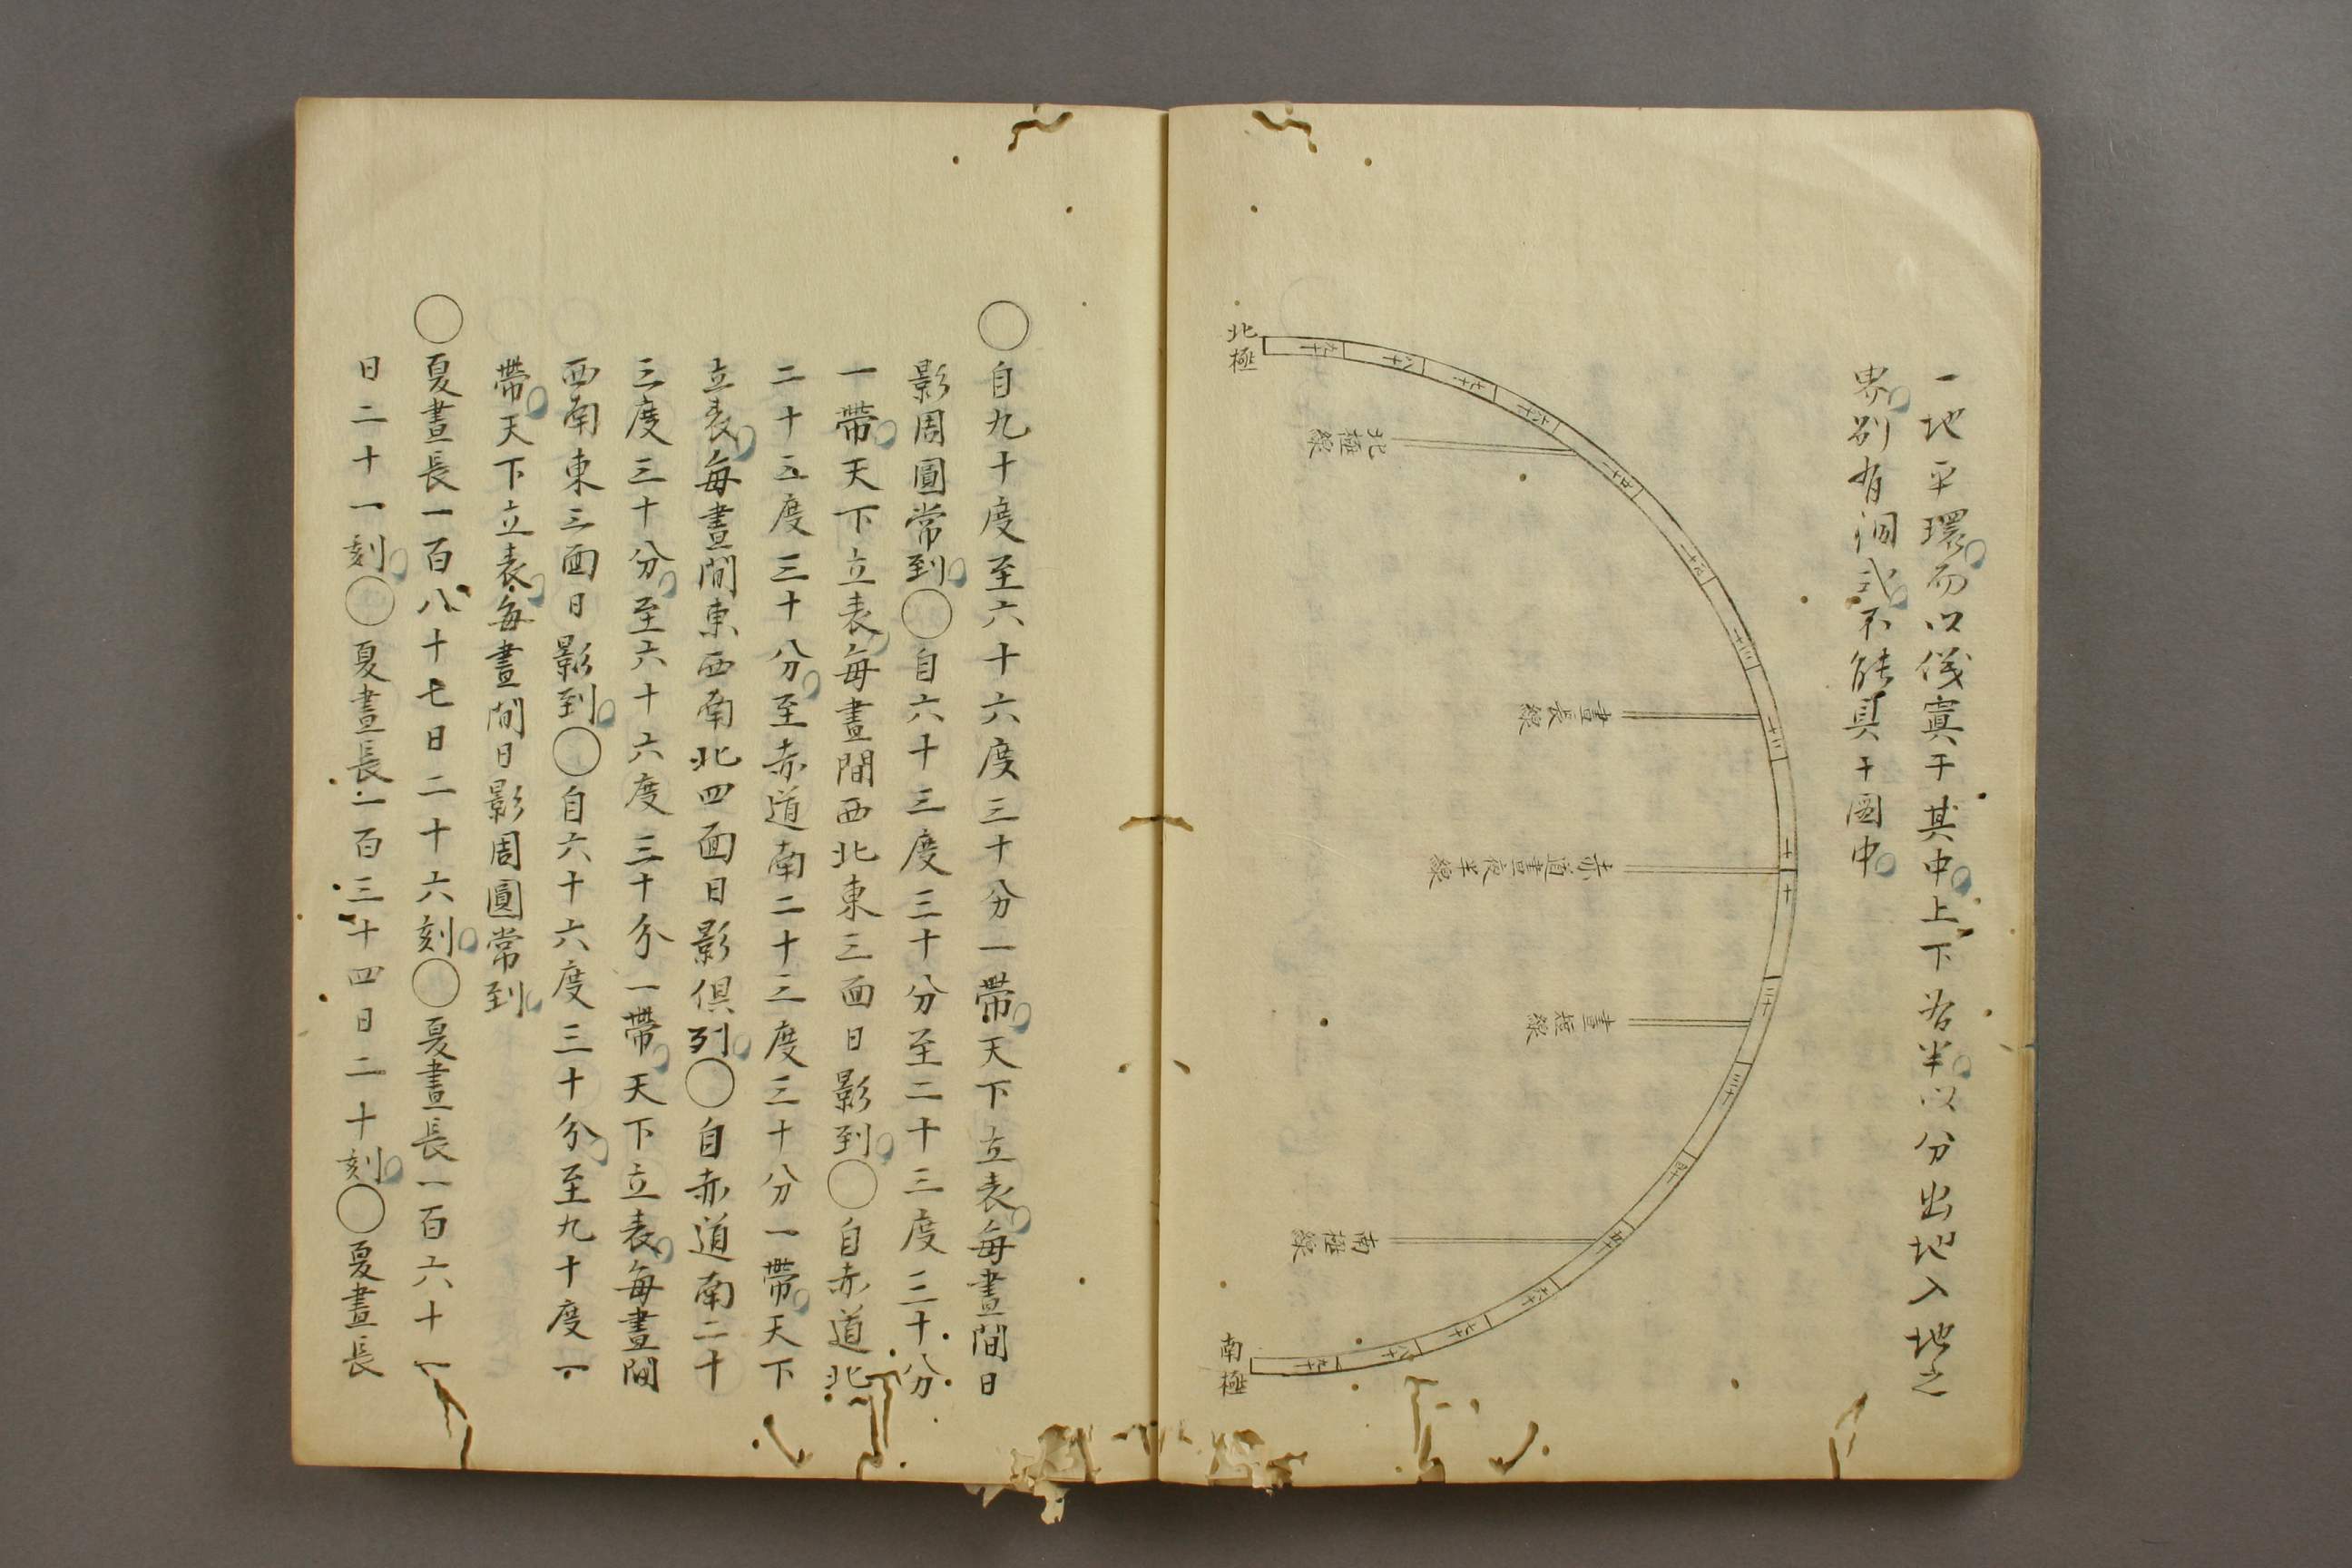 一地平環而以儀寘于其中上下為半以分出地入地之
界別有渾式不能具于圖中
北極
九十
八十
七十
六十
五十
四十
三十
二十
一十
十
二十
三十
四十
五十
六十
七十
八十
九十
南極
北極線
晝長線
赤道晝夜平線
晝短線
南極線
〇自九十度至六十六度三十分一帶天下立表每晝間日
影周圓常到〇自六十三度三十分至二十三度三十分
一帶天下立表每晝間西北東三面日影到〇自赤道北
二十五度三十分至赤道南二十三度三十分一帶天下
立表每晝間東西南北四面日影俱列〇自赤道南二十
三度三十分至六十六度三十分一帶天下立表每晝間
西南東三面日影到〇自六十六度三十分至九十度一
帶天下立表每晝間日影周圓常到
〇夏晝長一百八十七日二十六刻〇夏晝長一百六十一
日二十一刻〇夏晝長一百三十四日二十刻〇夏晝長